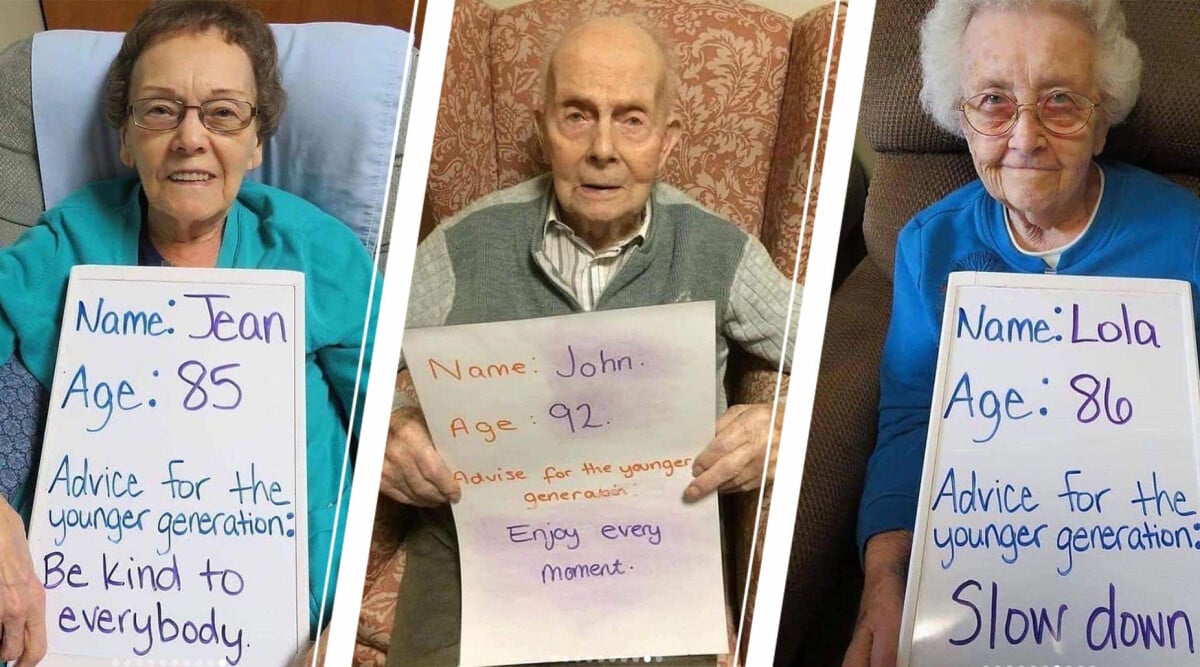 Name: Jean
Age: 85
Advice for the
younger generation:
Be kind to
everybody.
Name: John.
Age: 92.
Advise for the younger
generation:
Enjoy every
moment.
Name: Lola
Age: 86
Advice for the
younger generation:
Slow down